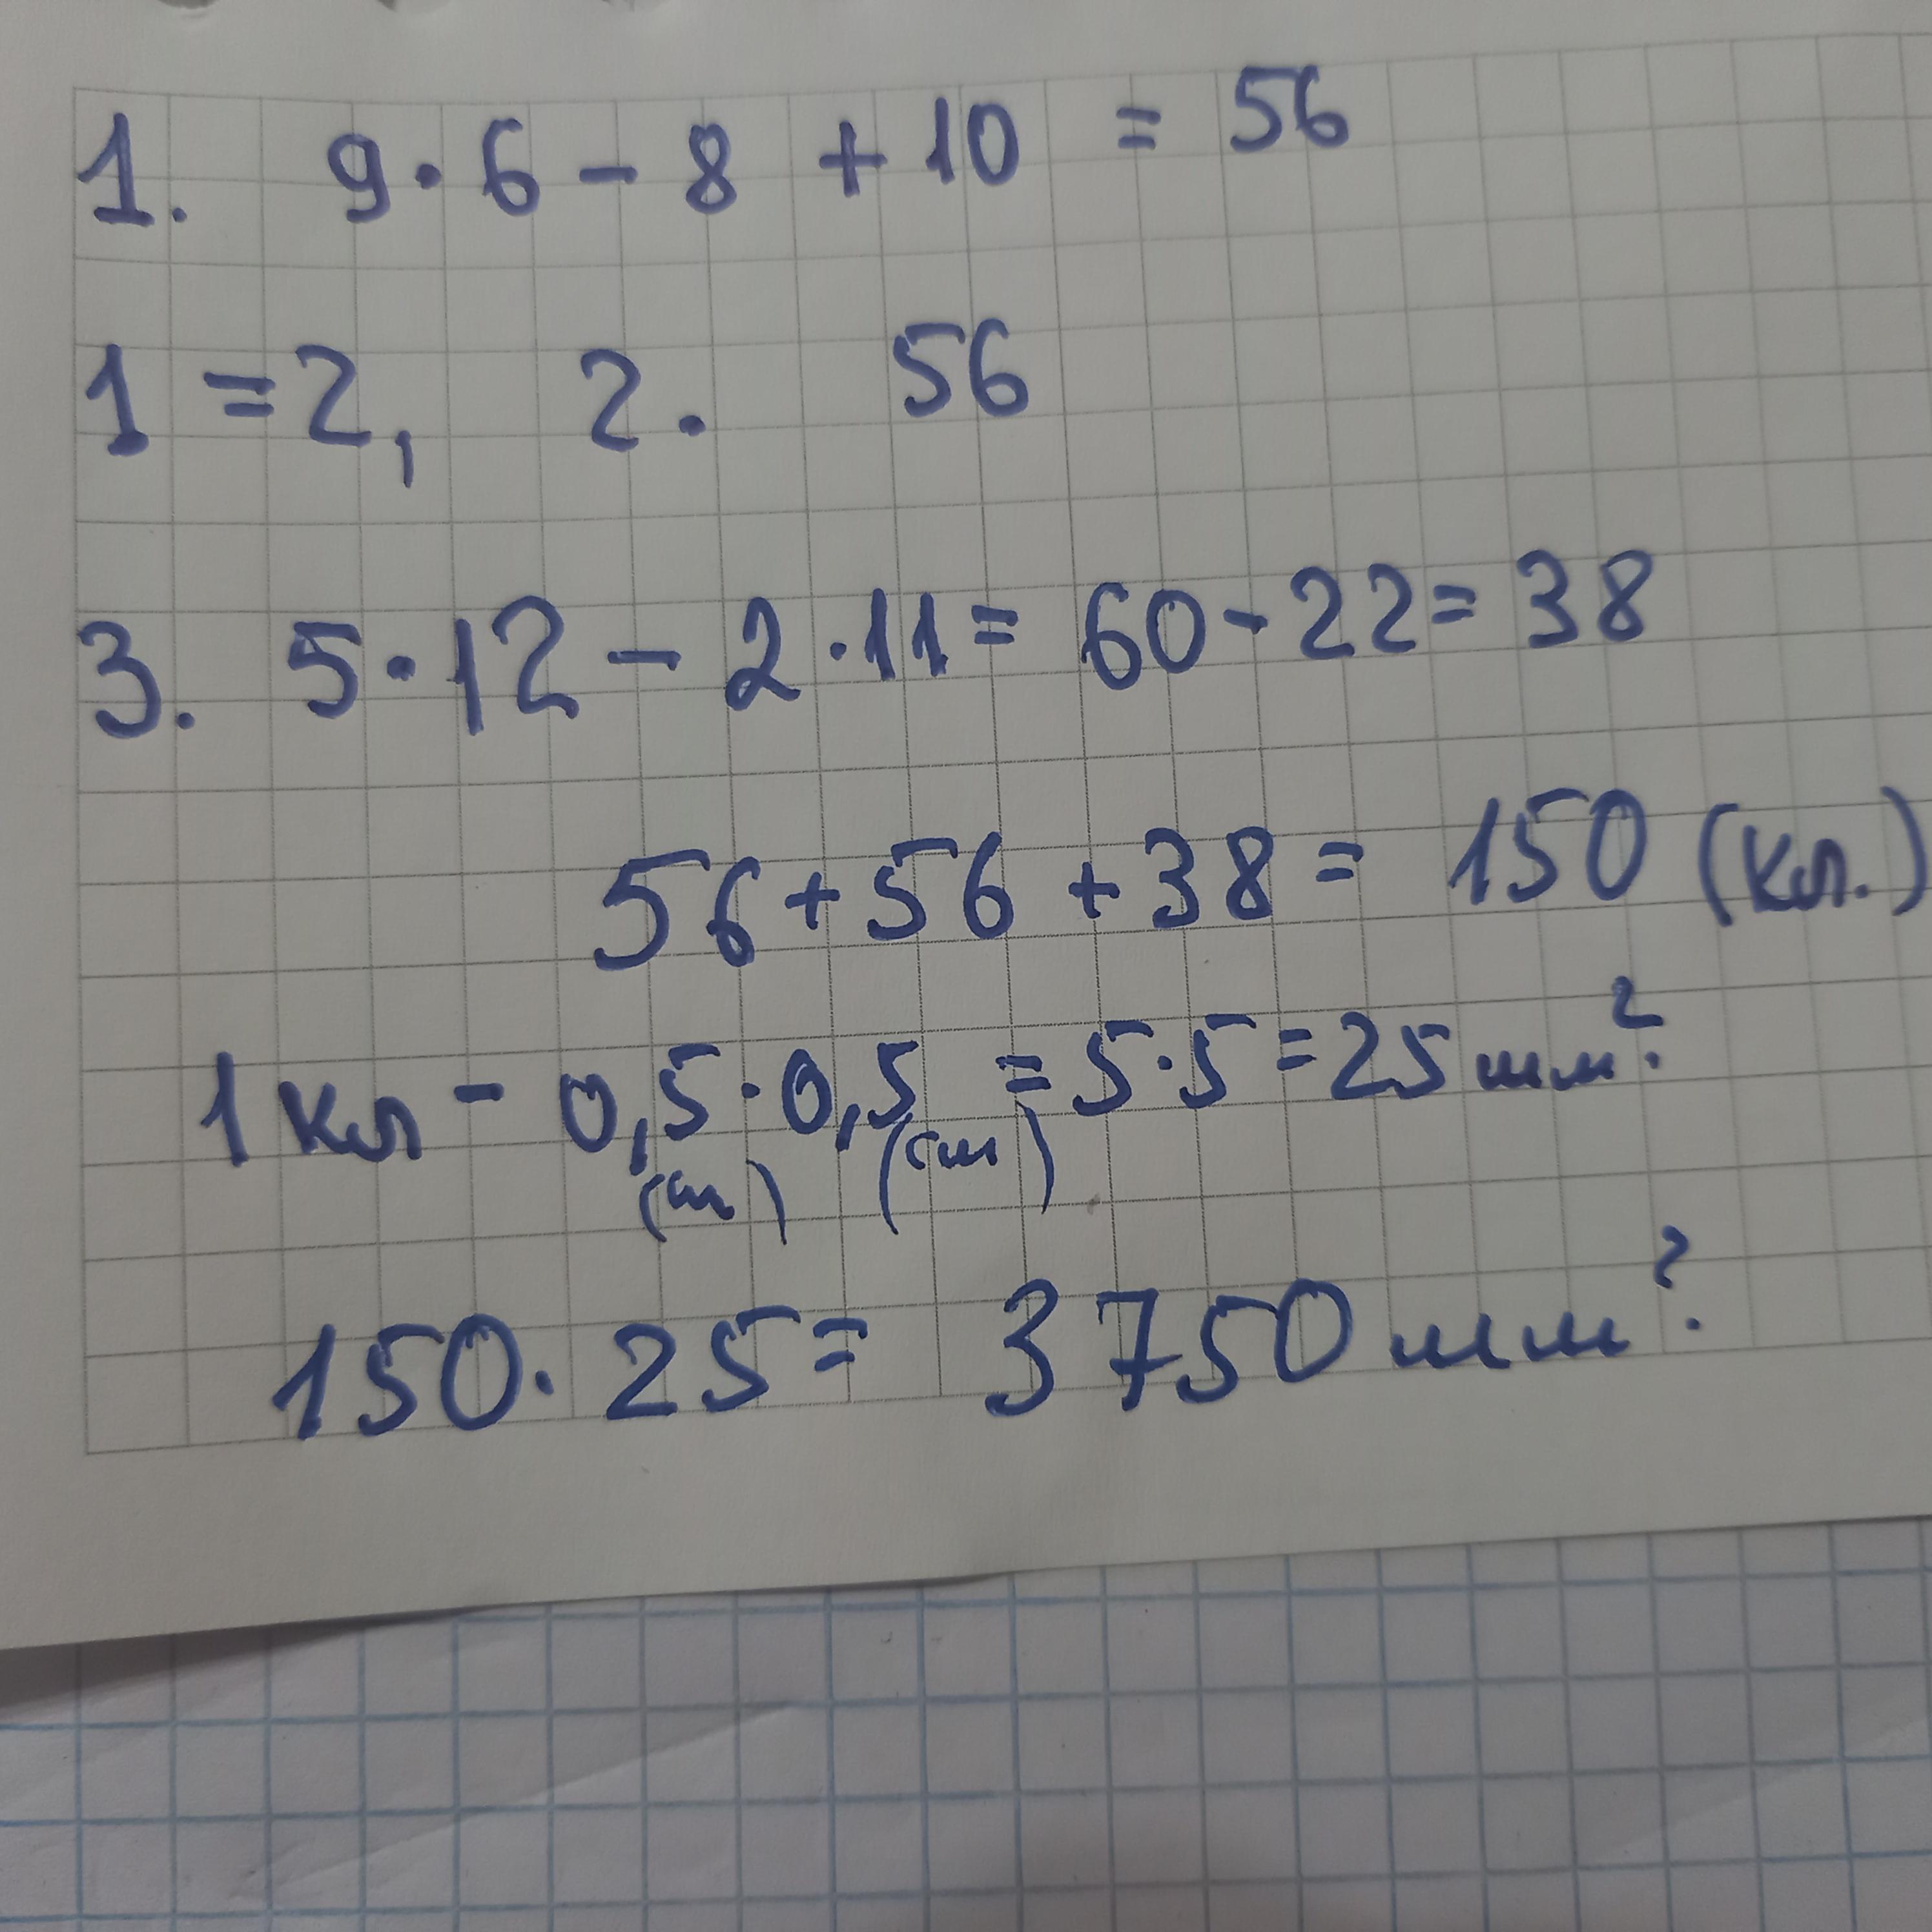 1. 9·6-8+10 = 56
1=2, 2. 56
3. 5·12-2·11=60-22=38
56+56+38=150 (кл.)
1 кл - 0,5·0,5 =5·5=25 мм².
(см) (см)
150·25= 3750 мм².